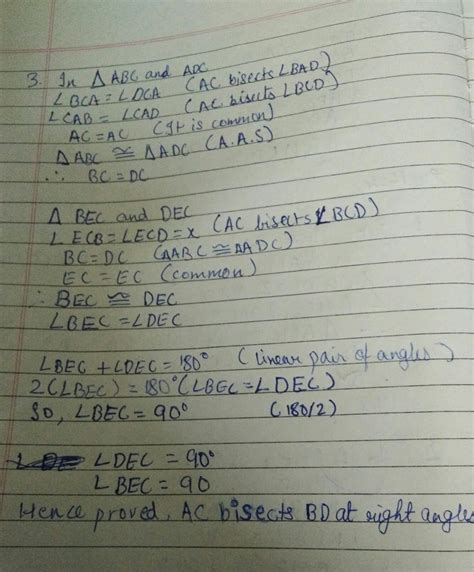 3. In △ ABC and ADC
∠BCA = ∠DCA (AC bisects ∠BAD)
∠CAB = ∠CAD (AC bisects ∠BCD)
AC = AC (It is common)
△ABC ≅ △ADC (A.A.S)
∴ BC = DC
△ BEC and DEC
∠ECB = ∠ECD = x (AC bisects ∠BCD)
BC = DC (△ABC ≅ △ADC)
EC = EC (common)
∴ BEC ≅ DEC
∠BEC = ∠DEC
∠BEC + ∠DEC = 180° (linear pair of angles)
2(∠BEC) = 180° (∠BEC = ∠DEC)
So, ∠BEC = 90° (180/2)
∠DEC = 90°
∠BEC = 90
Hence proved, AC bisects BD at right angles